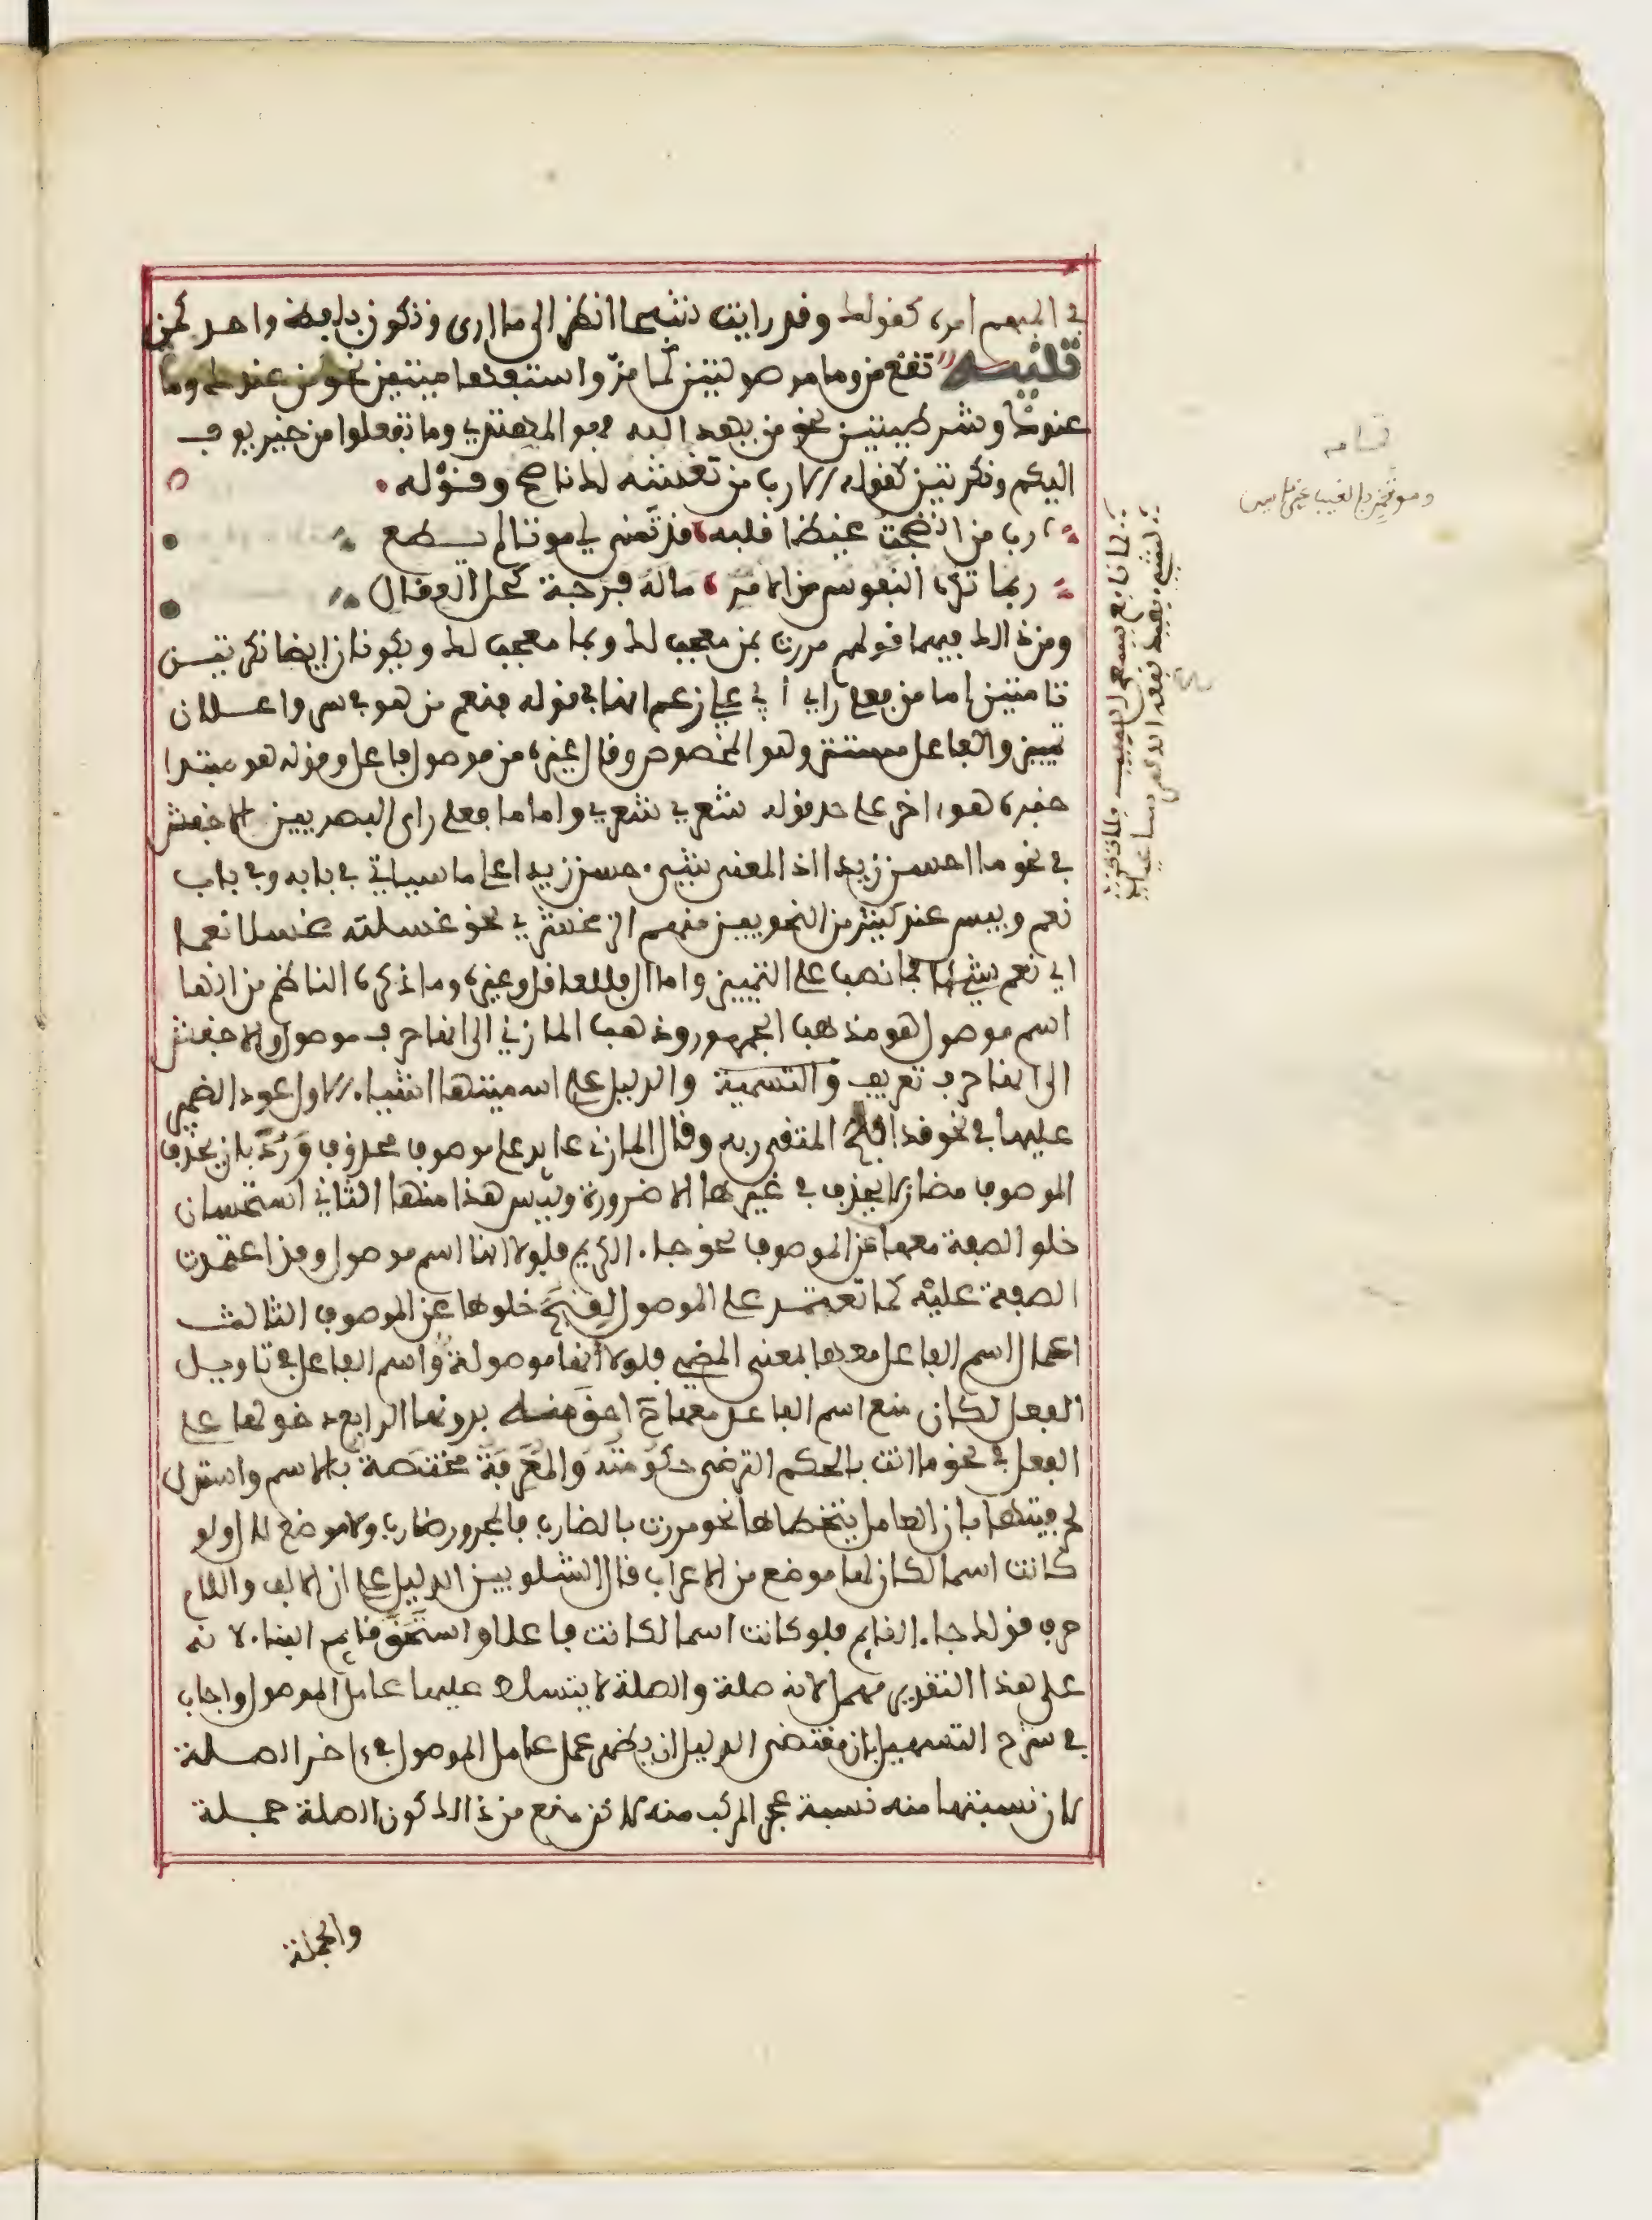 في المبهم امره كقولك وقد رايت شبحا انظر الى ما ارى وتكون بلفظ واحد كمن
تنبيه تقع من وما موصولتين كما مر واستفهاميتين نحو من عندك وما
عندك وشرطيتين نحو من يهد الله فهو المهتدي وما تفعلوا من خير يوف
اليكم ونكرتين كقوله الا رب من تغتشه لك ناصح وقوله
رب من انضجت غيظا قلبه قد تمنى لي موتا لم يطع
ربما تكره النفوس من الامر ماله فرجة كحل العقال
ومن ذالك فيهما قولهم مررت بمن معجب لك وبما معجب لك ويكونان ايضا نكرتين
تامتين اما من فعلى راي ابي علي زعم انها في قوله فنعم من هو في سر واعلان
تمييز والفاعل مستتر وهو المخصوص وقال غيره من موصول فاعل وقوله هو مبتدا
خبره هو اخر على حد قوله شعري شعري واما ما فعلى راى البصريين الا الاخفش
في نحو ما احسن زيدا اذ المعنى شيء حسن زيدا على ما سياتي في بابه وفي باب
نعم وبيس عند كثير من النحويين منهم الزمخشري نحو غسلته غسلا نعما
اي نعم شيئا فما نصب على التمييز واما ال فللعاقل وغيره وما ذكره الناظم من انها
اسم موصول هو مذهب الجمهور وذهب المازني الى انها حرف موصول والاخفش
الى انها حرف تعريف والتسمية والدليل على اسميتها اشياء الاول عود الضمير
عليها في نحو قد افلح المتقي ربه وقال المازني عايد على موصوف محذوف ورد بان يحذف
الموصوف مضان لا يحذف في غيرها الا ضرورة وليس هذا منها الثاني استحسان
خلو الصفة معها عن الموصوف نحو جاء الكريم فلولا انها اسم موصول وقد اعتمدت
الصفة عليه كما تعتمد على الموصول لقبح خلوها عن الموصوف الثالث
اعمال اسم الفاعل معها بمعنى المضي فلولا انها موصولة واسم الفاعل في تاويل
الفعل لكان منع اسم الفاعل معها احق منه بدونها الرابع دخولها على
الفعل في نحو ما انت بالحكم الترضى حكومته والمعرفة مختصة بالاسم واستدل
لحرفيتها بان العامل يتخطاها نحو مررت بالضارب فالمجرور ضارب ولا موضع لال ولو
كانت اسما لكان لها موضع من الاعراب قال الشلوبين الدليل على ان الالف واللام
حرف قولك جاء القايم فلو كانت اسما لكانت فاعلا واستحق قايم البناء لانه
على هذا التقدير مهمل لانه صلة والصلة لا يتسلط عليها عامل الموصول واجاب
في شرح التسهيل بان مقتضى الدليل ان يظهر عمل عامل الموصول في اخر الصلة
لان نسبتها منه نسبة عجز المركب منه لاكن منع من ذالك كون الصلة جملة
والجملة